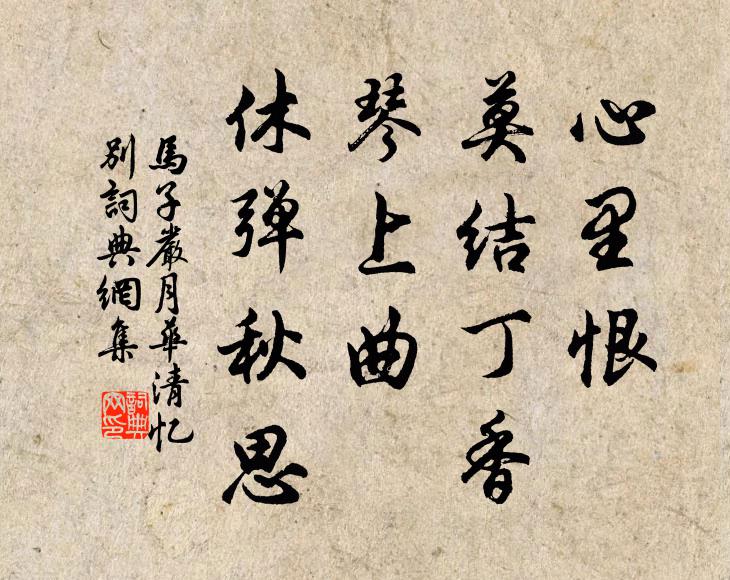 心里恨
莫结丁香
琴上曲
休弹秋思
馬子嚴月華清忆
別詞典網集
詞典